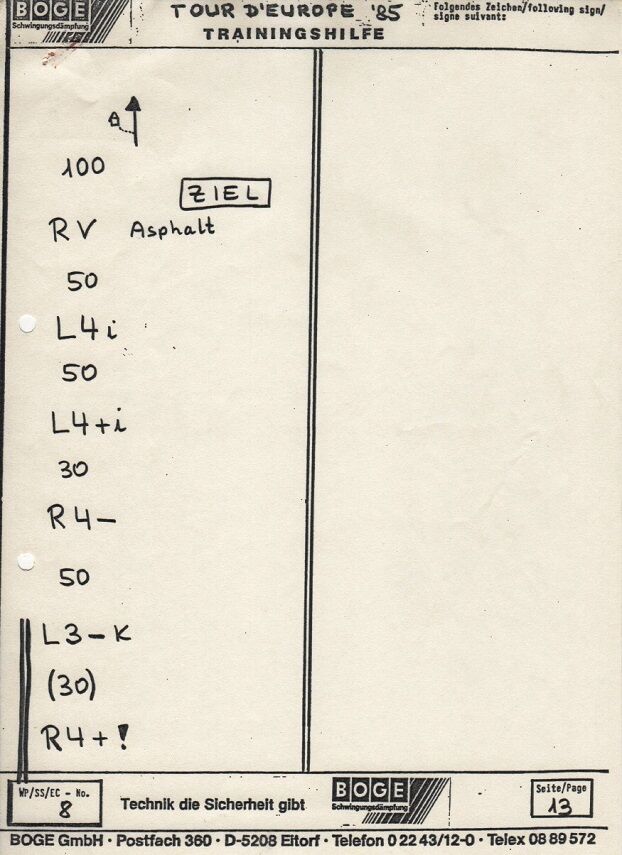 BOGE
Schwingungsdämpfung
TOUR D'EUROPE '85
TRAININGSHILFE
Folgendes Zeichen/following sign/
signe suivant:
100
ZIEL
RV Asphalt
50
L4i
50
L4+i
30
R4-
50
L3-K
(30)
R4+!
WP/SS/EC - No.
8
Technik die Sicherheit gibt
BOGE
Schwingungsdämpfung
Seite/Page
13
BOGE GmbH · Postfach 360 · D-5208 Eitorf · Telefon 0 22 43/12-0 · Telex 08 89 572